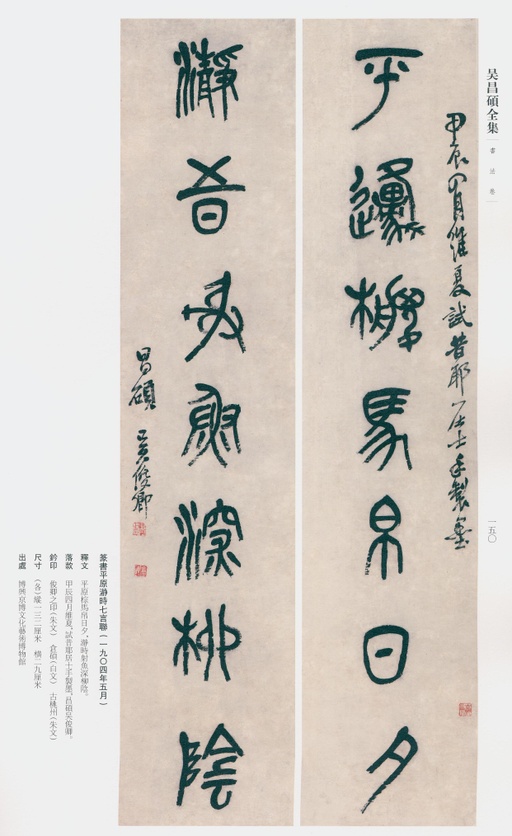 吴昌碩全集
書法卷
一五〇
甲辰四月維夏試昔耶居士手製墨
平邍椶馬帛日夕
瀞時射魚深柳陰
昌碩吴俊卿
篆書平原瀞時七言聯（一九〇四年五月）
釋文　平原椶馬帛日夕，瀞時射魚深柳陰。
落款　甲辰四月維夏，試昔耶居士手製墨。昌碩吴俊卿。
鈐印　俊卿之印（朱文）　倉碩（白文）　古桃州（朱文）
尺寸　（各）縱一三二厘米　橫二九厘米
出處　博興京博文化藝術博物館